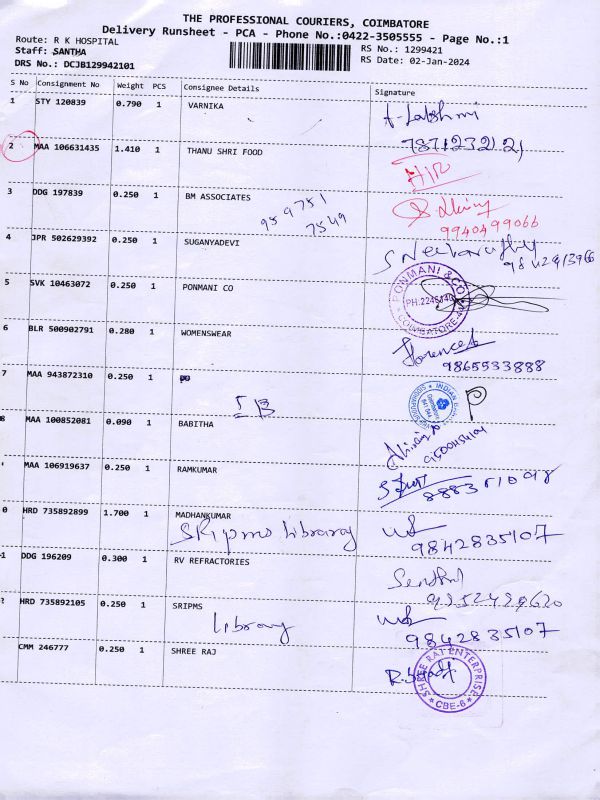 THE PROFESSIONAL COURIERS, COIMBATORE
Delivery Runsheet - PCA - Phone No.:0422-3505555 - Page No.:1
Route: R K HOSPITAL
Staff: SANTHA
DRS No.: DCJB129942101
RS No.: 1299421
RS Date: 02-Jan-2024
S No Consignment No Weight PCS Consignee Details Signature
1 STY 120839 0.790 1 VARNIKA
787123221
2 MAA 106631435 1.410 1 THANU SHRI FOOD
3 DDG 197839 0.250 1 BM ASSOCIATES
959751
7549
9940499066
4 JPR 502629392 0.250 1 SUGANYADEVI
9842913966
5 SVK 10463072 0.250 1 PONMANI CO
PONMANI & CO
COIMBATORE
6 BLR 500902791 0.280 1 WOMENSWEAR
9865533888
7 MAA 943872310 0.250 1
IB
8 MAA 100852081 0.090 1 BABITHA
MAA 106919637 0.250 1 RAMKUMAR
8883510098
0 HRD 735892899 1.700 1 MADHANKUMAR
SRipms Libraray
9842835107
1 DDG 196209 0.300 1 RV REFRACTORIES
Senthil
2 HRD 735892105 0.250 1 SRIPMS
Library
9842835107
CMM 246777 0.250 1 SHREE RAJ
SHREE RAJ ENTERPRISE
CBE-6